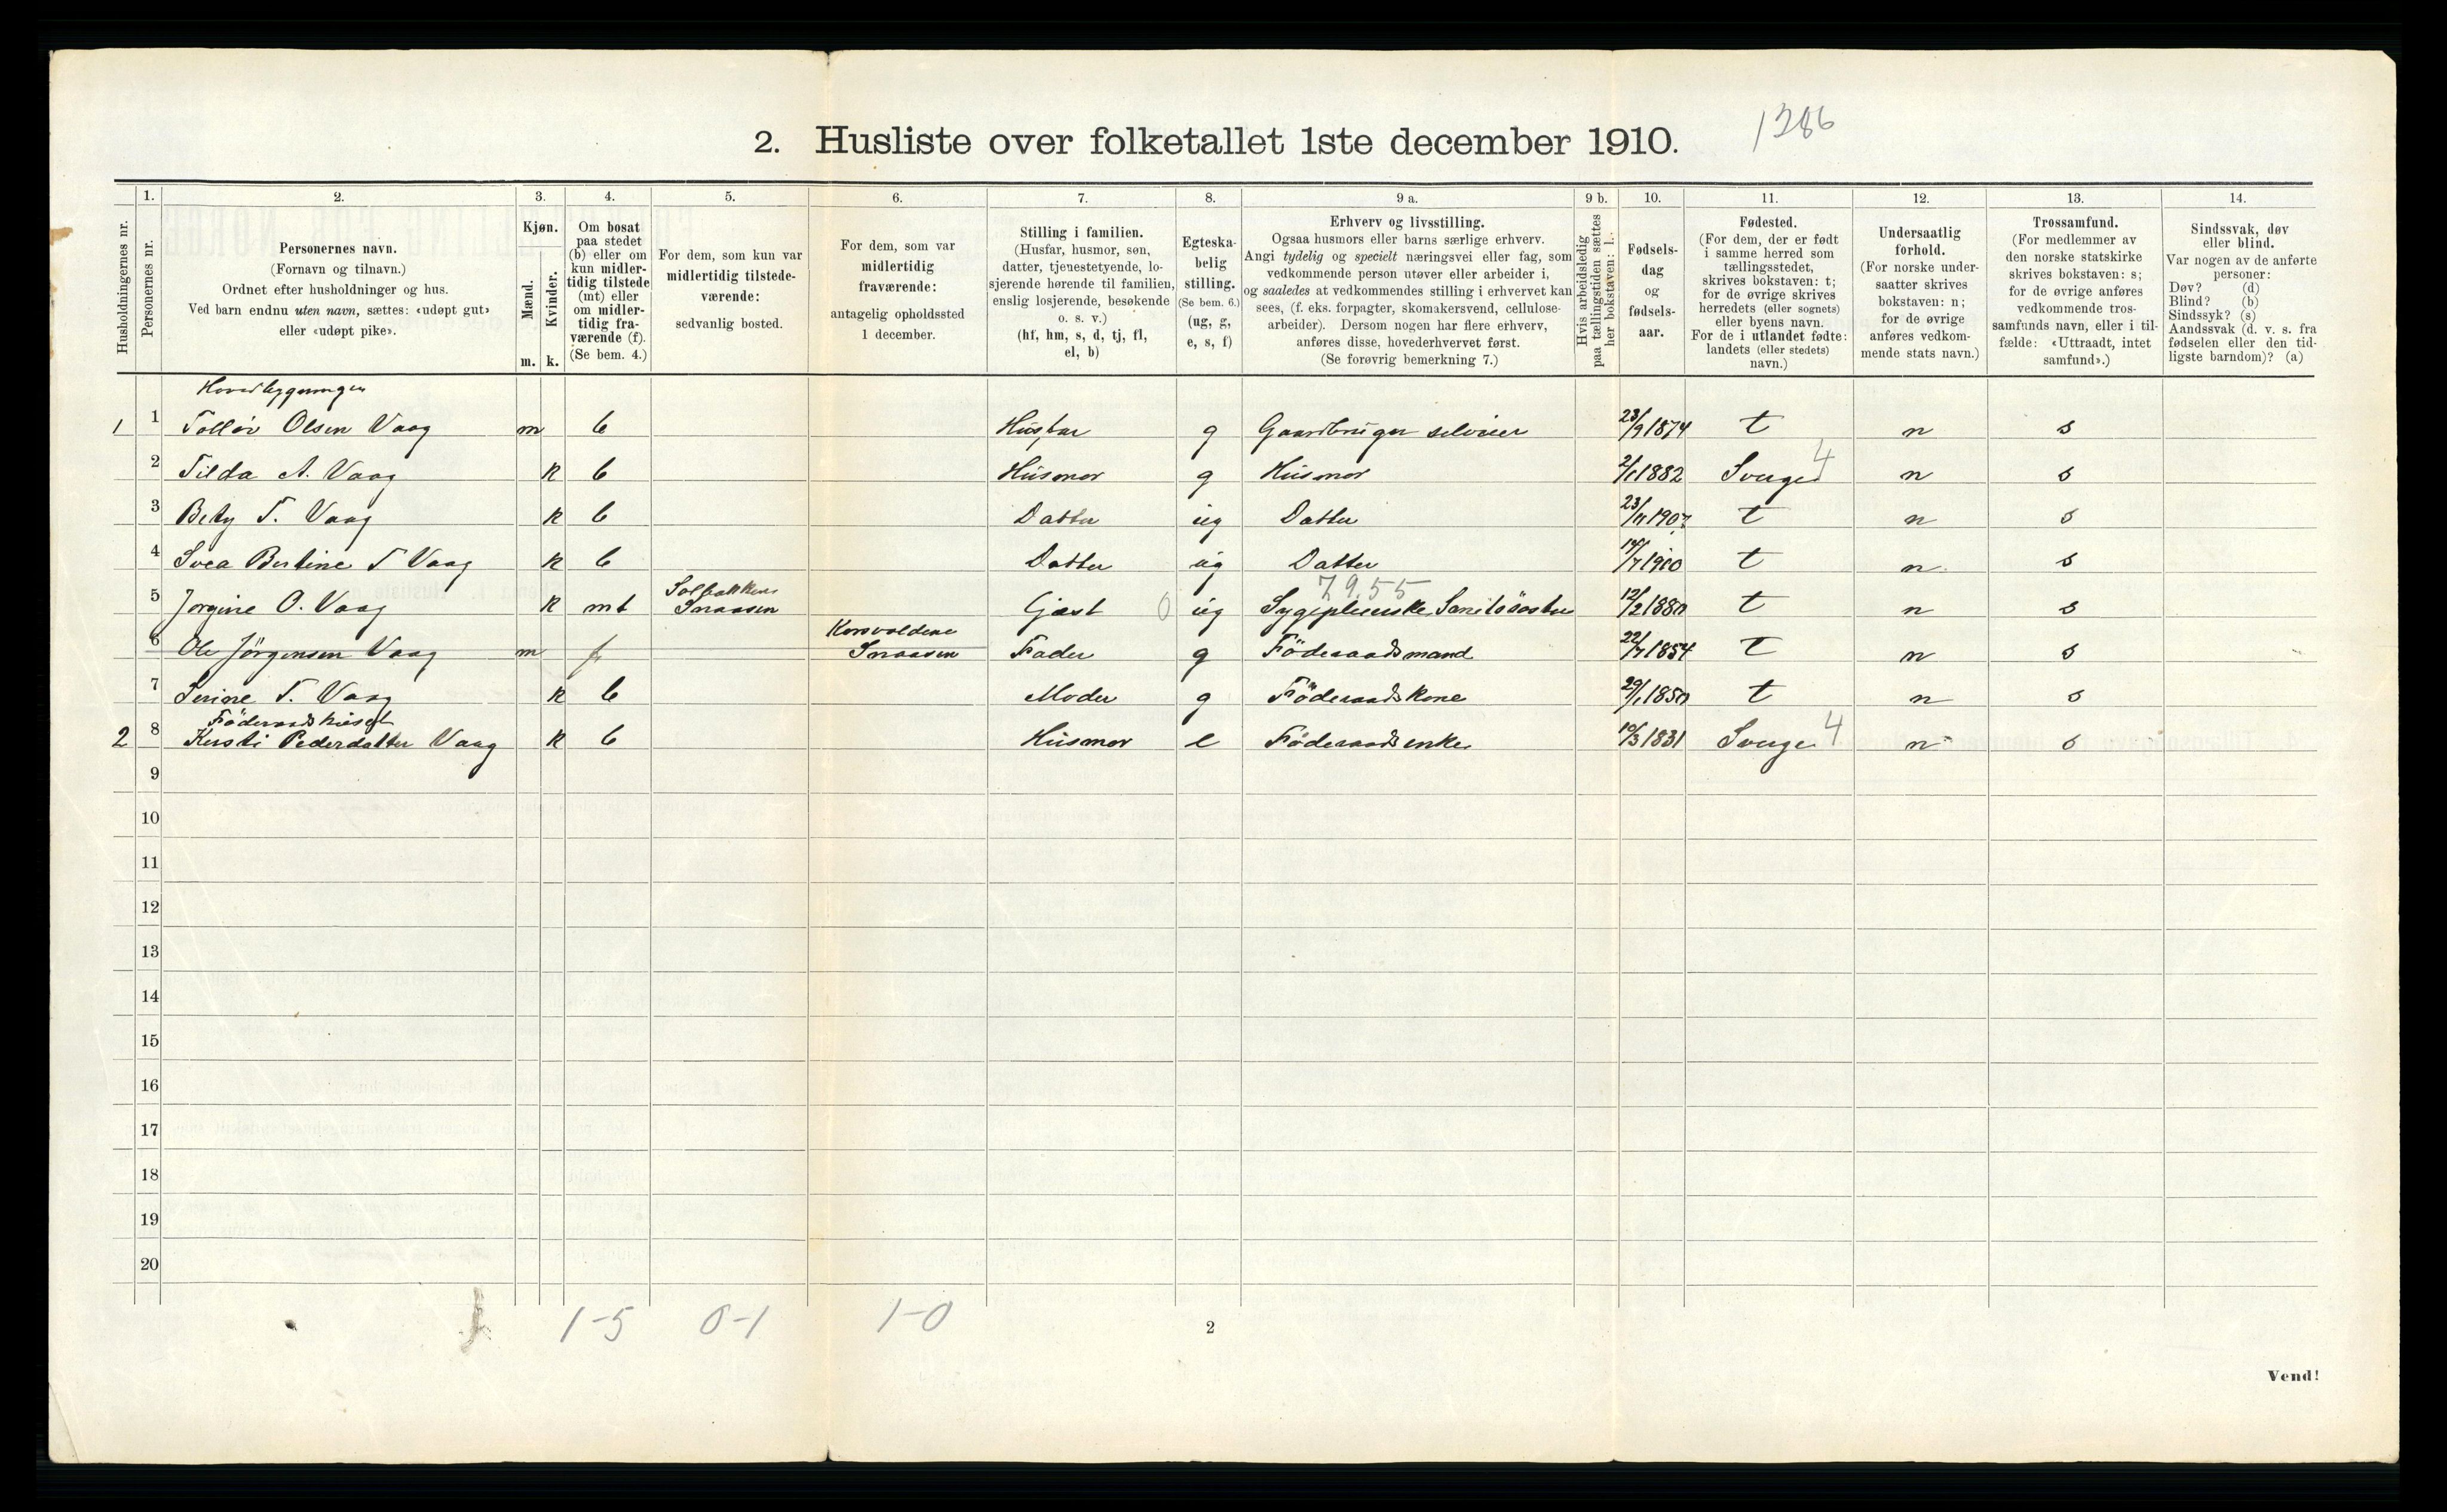 1286
2. Husliste over folketallet 1ste december 1910.
1. 2. 3. 4. 5. 6. 7. 8. 9 a. 9 b. 10. 11. 12. 13. 14.
Husholdningernes nr.
Personernes nr.
Personernes navn.
(Fornavn og tilnavn.)
Ordnet efter husholdninger og hus.
Ved barn endnu uten navn, sættes: «udøpt gut»
eller «udøpt pike».
Kjøn.
Mænd.
Kvinder.
m. k.
Om bosat
paa stedet
(b) eller om
kun midler-
tidig tilstede
(mt) eller
om midler-
tidig fra-
værende (f).
(Se bem. 4.)
For dem, som kun var
midlertidig tilstede-
værende:
sedvanlig bosted.
For dem, som var
midlertidig
fraværende:
antagelig opholdssted
1 december.
Stilling i familien.
(Husfar, husmor, søn,
datter, tjenestetyende, lo-
sjerende hørende til familien,
enslig losjerende, besøkende
o. s. v.)
(hf, hm, s, d, tj, fl,
el, b)
Egteska-
belig
stilling.
(Se bem. 6.)
(ug, g,
e, s, f)
Erhverv og livsstilling.
Ogsaa husmors eller barns særlige erhverv.
Angi tydelig og specielt næringsvei eller fag, som
vedkommende person utøver eller arbeider i,
og saaledes at vedkommendes stilling i erhvervet kan
sees, (f. eks. forpagter, skomakersvend, cellulose-
arbeider). Dersom nogen har flere erhverv,
anføres disse, hovederhvervet først.
(Se forøvrig bemerkning 7.)
Hvis arbeidsledig
paa tællingstiden sættes
her bokstaven: l.
Fødsels-
dag
og
fødsels-
aar.
Fødested.
(For dem, der er født
i samme herred som
tællingsstedet,
skrives bokstaven: t;
for de øvrige skrives
herredets (eller sognets)
eller byens navn.
For de i utlandet fødte:
landets (eller stedets)
navn.)
Undersaatlig
forhold.
(For norske under-
saatter skrives
bokstaven: n;
for de øvrige
anføres vedkom-
mende stats navn.)
Trossamfund.
(For medlemmer av
den norske statskirke
skrives bokstaven: s;
for de øvrige anføres
vedkommende tros-
samfunds navn, eller i til-
fælde: «Uttraadt, intet
samfund».)
Sindssvak, døv
eller blind.
Var nogen av de anførte
personer:
Døv? (d)
Blind? (b)
Sindssyk? (s)
Aandssvak (d. v. s. fra
fødselen eller den tid-
ligste barndom)? (a)
Hovedbygningen
1 1 Tollør Olsen Vaag m b Husfar g Gaardbruger selveier 23/9 1874 t n s
2 Tilda A. Vaag k b Husmor g Husmor 2/1 1882 Sverige 4 n s
3 Bety T. Vaag k b Datter ug Datter 1907 t n s
4 Svea Bertine T Vaag k b Datter ug Datter 14/7 1910 t n s
7955
Solbakken
5 Jorgine O. Vaag k mt Snaasen Gjæst 0 ug Sygepleierske, Sanitetsøster 12/2 1880 t n s
Korsvoldene
6 Ole Jörgensen Vaag m f Snaasen Fader g Föderaadsmand 22/7 1854 t n s
7 Serine T. Vaag k b Moder g Föderaadskone 29/1 1850 t n s
Föderaadshuset
2 8 Kersti Pederdatter Vaag k b Husmor e Föderaadsenke 10/3 1831 Sverige 4 n s
9
10
11
12
13
14
15
16
17
18
19
20
1-5 0-1 1-0
2
Vend!